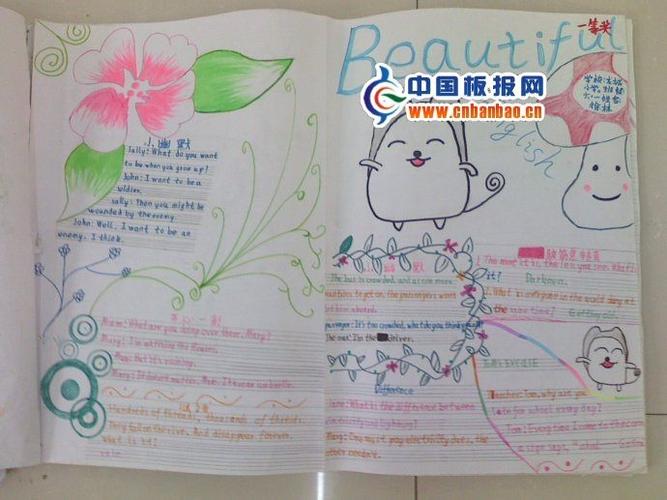 Beautiful
English
一等奖
中国板报网
www.cnbanbao.cn
小幽默
Sally: What do you want
to be when you grow up?
John: I want to be a
soldier.
Sally: Then you might be
wounded by the enemy.
John: Well, I want to be an
enemy, I think.
Mum: What are you doing over there, Mary?
Mary: I'm watering the flowers.
Mum: But it's raining.
Mary: It doesn't matter, Mum. I
Hundreds of threads, thousands of threads.
They fall on the river. And disappear forever.
What is it?
The bus is crowded, and as one more
man tries to get on, the passengers won't
let him aboard.
passenger: It's too crowded, what do you think you
The man: I'm the driver.
Difference
Jane: What is the difference between
Mary: One must pay electricity
The more it is, the less you see. What is
it?
Darkness.
What is everyone in the world doing at
the same time?
Getting old.
Teacher: Tom, why are you
late for school every day?
Tom: Every time I come to the
a sign says, "